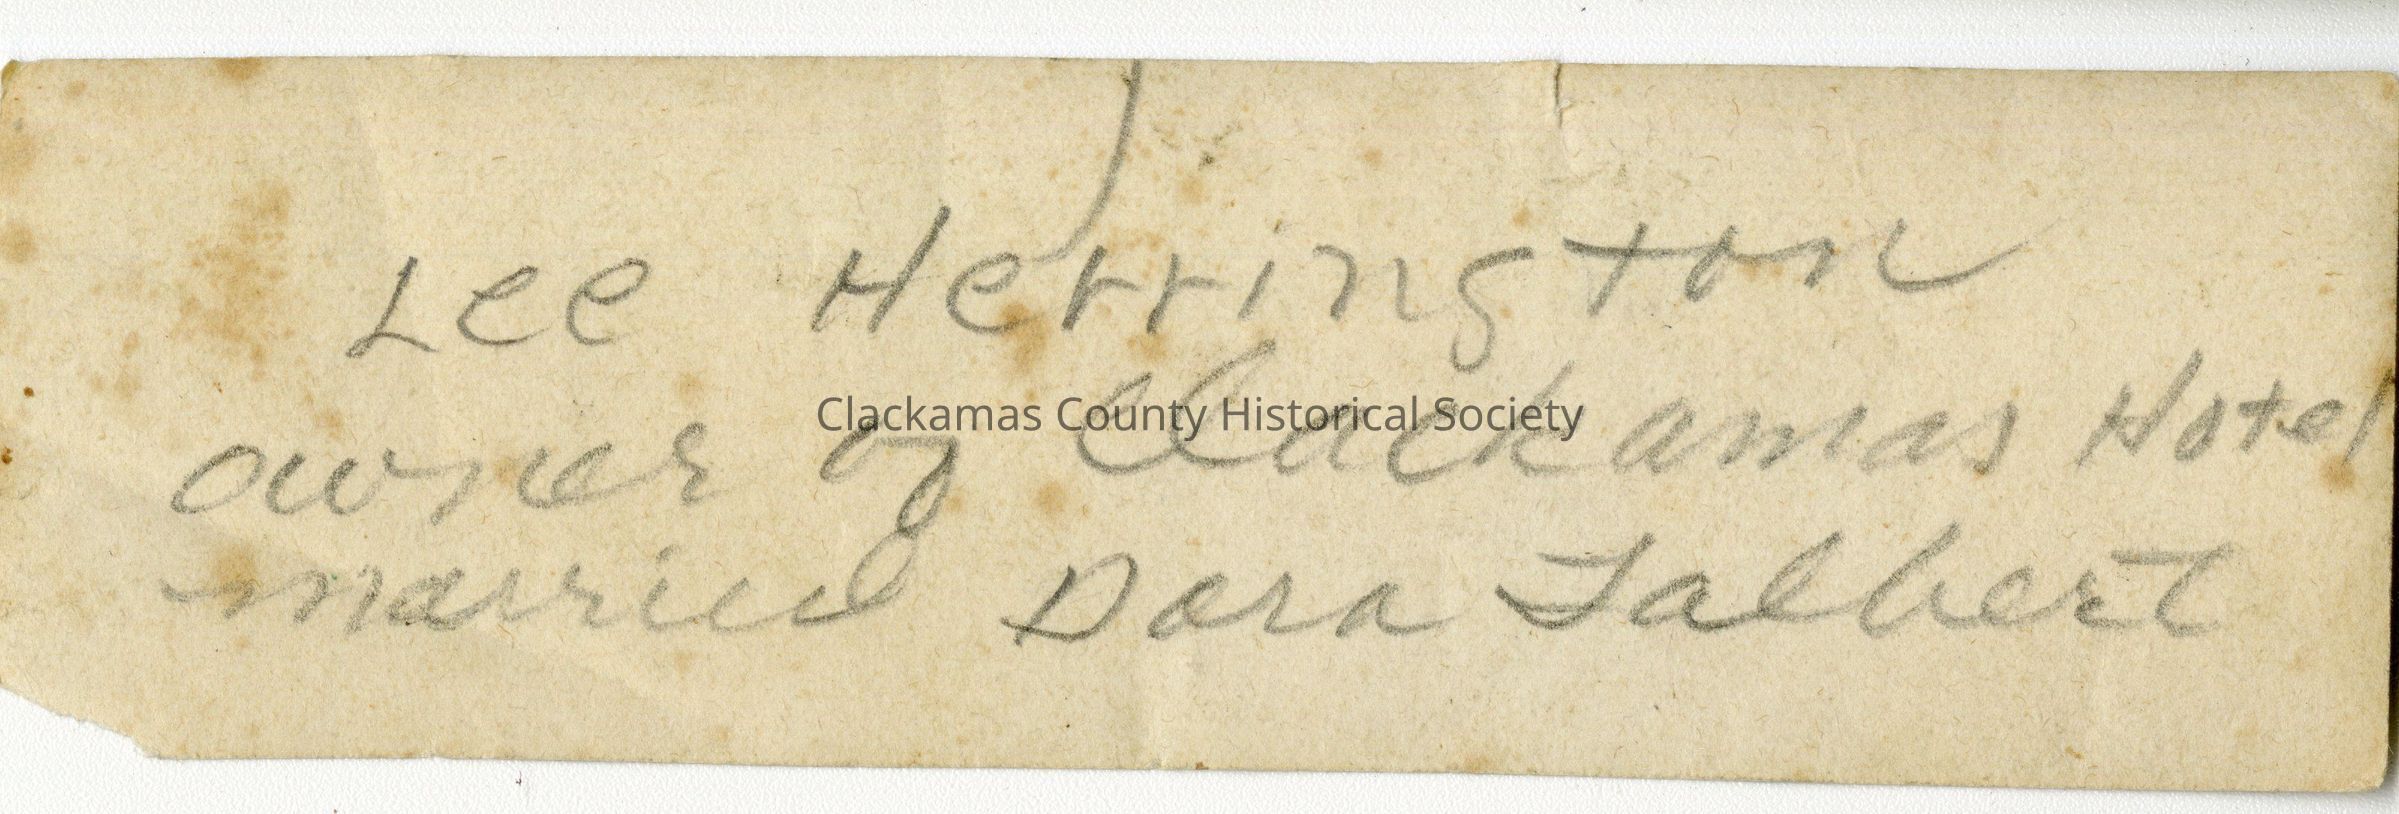 Lee Herrington
Clackamas County Historical Society
owner of Clackamas Hotel
married Dora Talbert